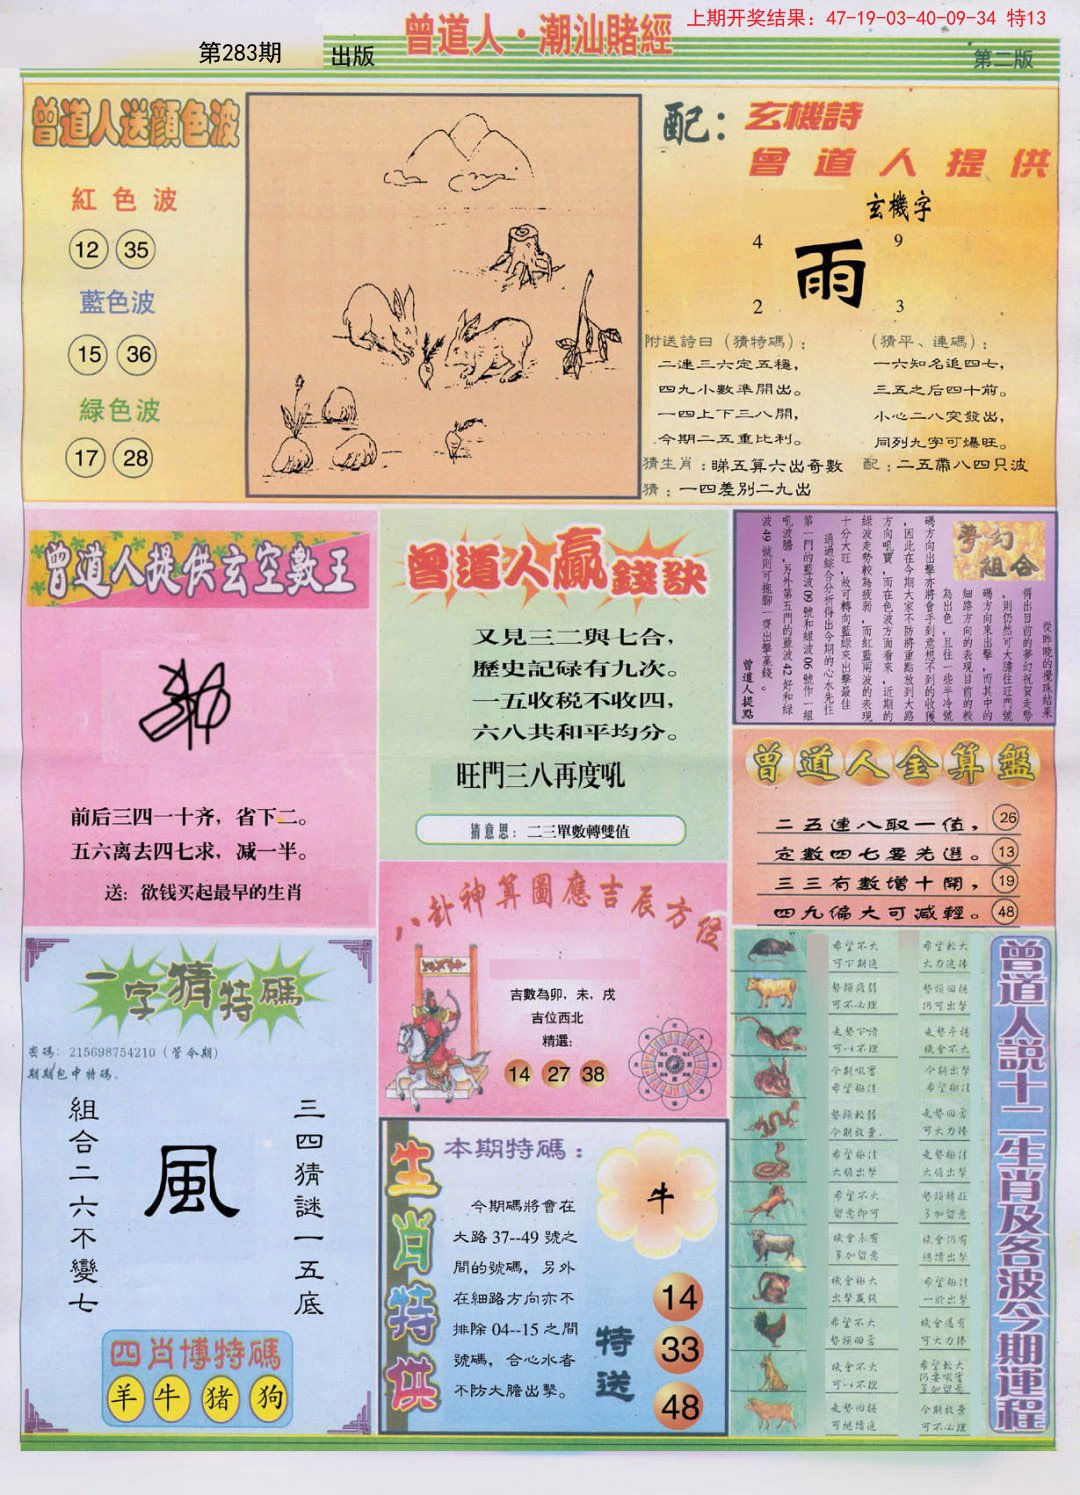 上期开奖结果：47-19-03-40-09-34 特13
第283期
出版
曾道人·潮汕賭經
第二版
曾道人送顏色波
紅色波
12 35
藍色波
15 36
緑色波
17 28
配：玄機詩
曾道人提供
玄機字
4 9
雨
2 3
附送詩曰（猜特碼）；
二連三六定五穩，
四九小數準開出。
一四上下三八開，
今期二五重比利。
（猜平、連碼）；
一六知名追四七，
三五之后四十前。
小心二八突發出，
同列九字可爆旺。
猜生肖：睇五算六出奇數
配：二五帶八四只波
猜：一四差別二九出
曾道人提供玄空數王
前后三四一十齐，省下二。
五六离去四七求，减一半。
送：欲钱买起最早的生肖
曾道人贏錢訣
又見三二與七合，
歷史記碌有九次。
一五收税不收四，
六八共和平均分。
旺門三八再度吼
猜意思：二三單數轉雙值
夢幻組合
從昨晚的攪珠結果
得出目前的夢幻祝賀走勢
，則仍然可大膽往旺門號
碼方向來出擊，而其中的
細路方向的表現目前的較
為出色，且往一些半冷號
碼方向出擊亦將會手到意想不到的收獲
，因此在今期大家不防將重點放到大路
方向吼寶，而在色波方面看來，近期的
綠波走勢較為疲弱，而紅藍兩波的表現
十分大旺，故可轉向藍綠來出擊最佳
通過綜合分析得出今期的心水先往
第一門的藍波09號和綠波06號作一組
吼波膽，另外第五門的藍波42好和綠
波49號則可拖腳一齊出擊贏錢。
曾道人提點
曾道人金算盤
二五連八取一值，26
定數四七要先選。13
三三有數增十開，19
四九偏大可減輕。48
八卦神算圖應吉辰方位
吉數為卯，未，戌
吉位西北
精選：
14 27 38
一字猜特碼
密碼：215698754210（管令期）
期期包中特碼、
組合二六不變七
風
三四猜謎一五底
四肖博特碼
羊 牛 猪 狗
生肖特供
本期特碼：
今期碼將會在
大路37--49號之
間的號碼，另外
在細路方向亦不
排除04--15之間
號碼，合心水者
不防大膽出擊。
牛
特送
14
33
48
曾道人說十二生肖及各波今期運程
希望不大
可下期追
希望較大
大力追捧
勢頭疲弱
可不必理
勢頭回穩
仍可出擊
走勢下滑
可以不理
走勢平穩
機會不大
今期吼寶
希望極佳
今期出擊
希望極佳
勢頭較弱
今期放棄
走勢回勇
可大力捧
希望極佳
大膽出擊
走勢極佳
大膽出擊
希望不大
留意即可
勢頭轉旺
多加留意
機會未有
多加留意
機會仍有
繼續出擊
機會極大
出擊贏錢
希望極佳
一於出擊
希望不大
勢頭回落
機會還有
可大力捧
機會不大
可以不理
希望較大
仍要吼實
多加留意
走勢回穩
可繼續追
今期放棄
可不必理